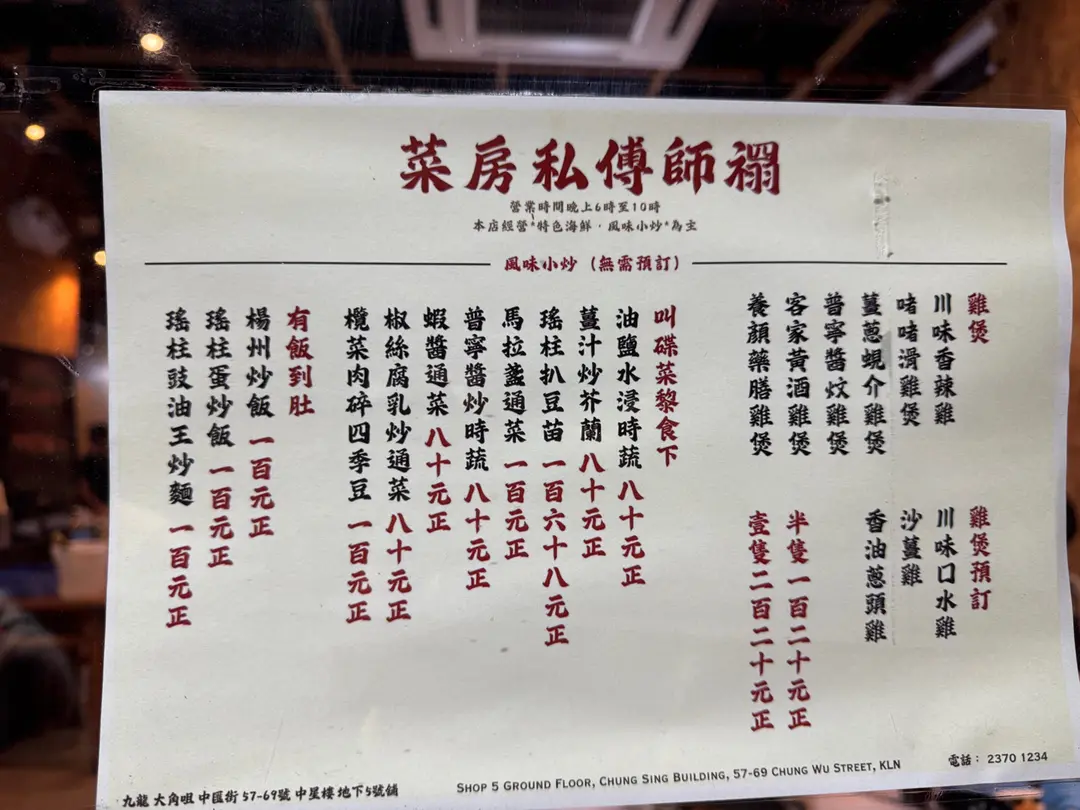 禤師傅私房菜
營業時間晚上6時至10時
本店經營*特色海鮮，風味小炒*為主
風味小炒（無需預訂）
雞煲
川味香辣雞
啫啫滑雞煲
薑蔥蜆介雞煲
普寧醬炆雞煲
客家黃酒雞煲
養顏藥膳雞煲
雞煲預訂
川味口水雞
沙薑雞
香油蔥頭雞
半隻一百二十元正
壹隻二百二十元正
叫碟菜黎食下
油鹽水浸時蔬 八十元正
薑汁炒芥蘭 八十元正
瑤柱扒豆苗 一百六十八元正
馬拉盞通菜 一百元正
普寧醬炒時蔬 八十元正
蝦醬通菜 八十元正
椒絲腐乳炒通菜 八十元正
欖菜肉碎四季豆 一百元正
有飯到肚
楊州炒飯 一百元正
瑤柱蛋炒飯 一百元正
瑤柱豉油王炒麵 一百元正
九龍 大角咀 中匯街 57-69號 中星樓 地下5號舖
SHOP 5 GROUND FLOOR, CHUNG SING BUILDING, 57-69 CHUNG WU STREET, KLN
電話： 2370 1234